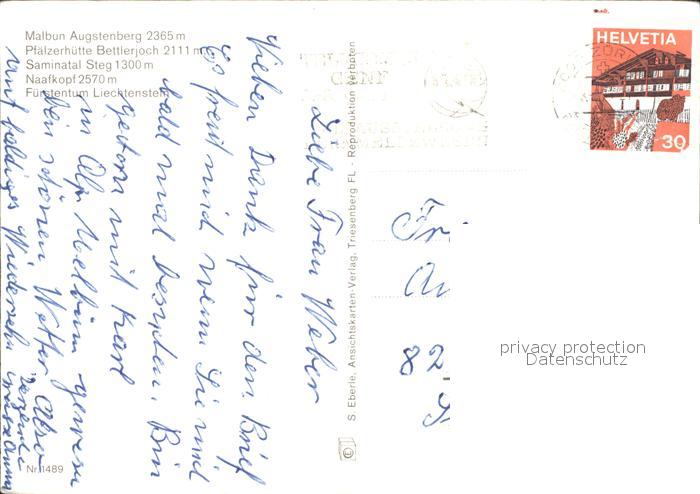 Malbun Augstenberg 2365 m
Pfälzerhütte Bettlerjoch 2111 m
Saminatal Steg 1300 m
Naafkopf 2570 m
Fürstentum Liechtenstein
Liebe Frau Weber
Vielen Dank für den Brief
Es freut mich wenn Sie mich
bald mal besuchen. Bin
gestern mit Karl
in Alp Malbun gewesen
bei schönem Wetter Also
auf baldiges Wiedersehn
Nr. 1489
S. Eberle, Ansichtskarten-Verlag, Triesenberg FL - Reproduktion verboten
GENF
HELVETIA
30
Fr
82
privacy protection
Datenschutz